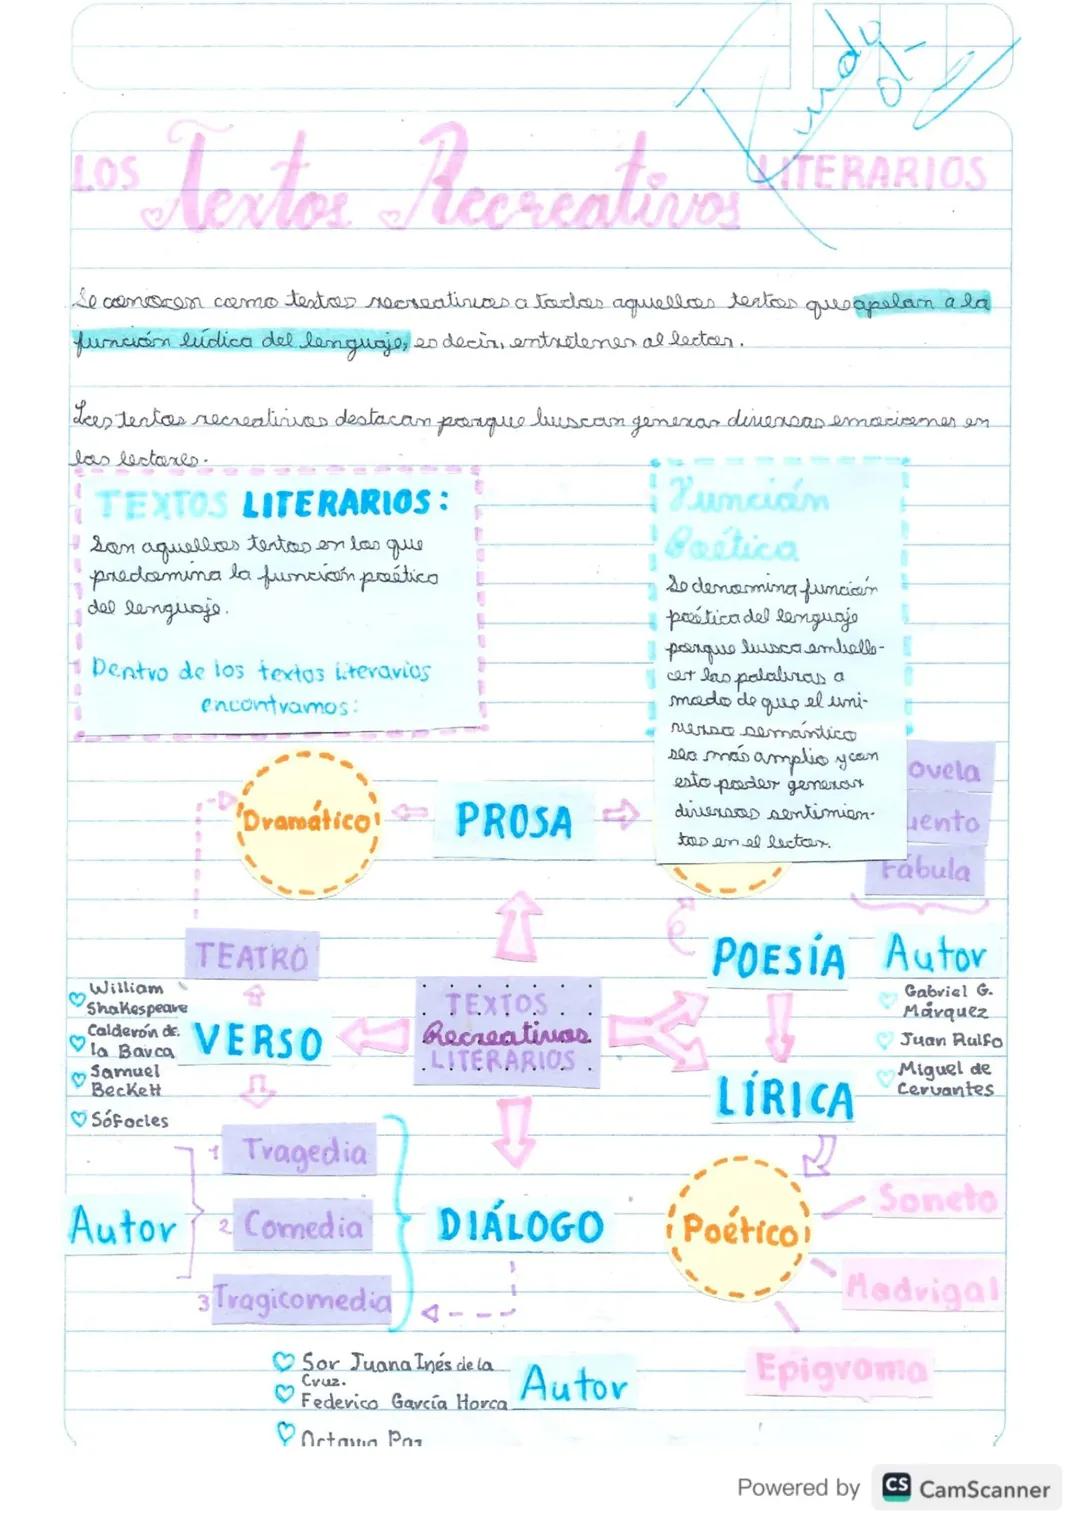 LOS Textos Recreativos LITERARIOS
Se conocen como textos recreativos a todos aquellos textos que apelan a la
función lúdica del lenguaje, es decir, entretener al lector.
Los textos recreativos destacan porque buscan generar diversas emociones en
los lectores.
TEXTOS LITERARIOS:
Son aquellos textos en los que
predomina la función poético
del lenguaje.
Dentro de los textos literarios
encontramos:
Función
Poética
Se denomina función
poética del lenguaje
porque busca embelle-
cer las palabras a
modo de que el uni-
verso semántico
sea más amplio y con
esto poder generar
diversos sentimien-
tos en el lector.
ovela
uento
Fábula
Dramático
PROSA
TEATRO
POESÍA
Autor
William
Shakespeare
Calderón de
la Barca
Samuel
Beckett
Sófocles
VERSO
TEXTOS
Recreativos
LITERARIOS
LÍRICA
Gabriel G.
Márquez
Juan Rulfo
Miguel de
Cervantes
Autor
1 Tragedia
2 Comedia
3 Tragicomedia
DIÁLOGO
Poético
Soneto
Madrigal
Epigrama
Sor Juana Inés de la
Cruz.
Federico García Horca
Octavio Paz
Autor
Powered by CS CamScanner